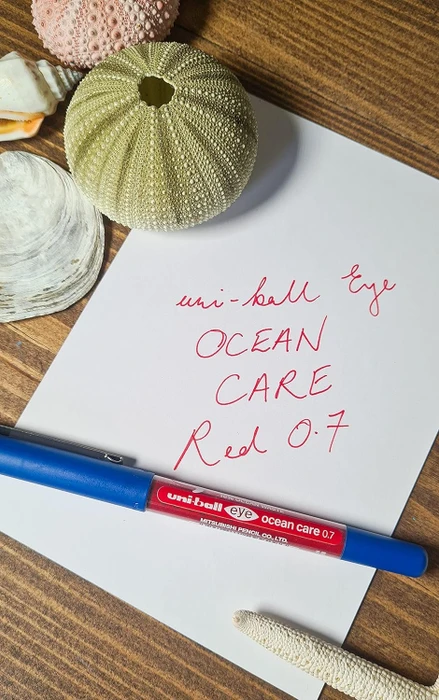 uni-ball Eye
OCEAN
CARE
Red 0.7
uni-ball eye ocean care 0.7
MITSUBISHI PENCIL CO., LTD.